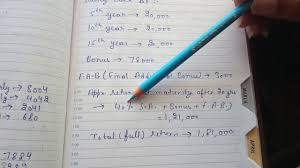 5th year → 20,000
10th year → 20,000
15th year → 20,000
Bonus → 78000
F.A.B (Final Additional Bonus) → 3000
Appx return maturity after 20 yrs
→ 40% S.A. + Bonus + F.A.B.
= 1,21,000
Total (full) return → 1,81,000
8004
4042
2041
680
7884